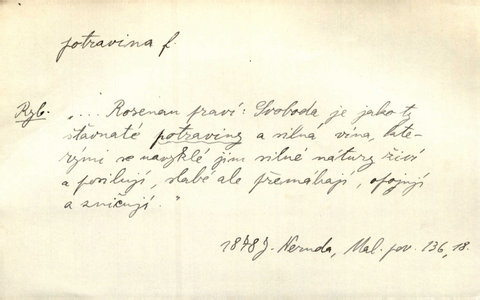 potravina f.
Ryb. „... Rosenau praví: Svoboda je jako ty
šťavnaté potraviny a silná vína, kte-
rými se navyklé jim silné nátury živí
a posilují, slabé ale přemáhají, opojují
a zničují."
1878 J. Neruda, Mal. pov. 136, 18.